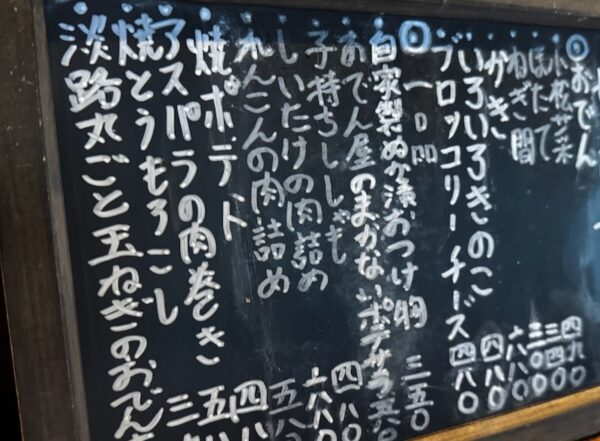 おでん
小松菜
ほたて
ねぎ間
かき 六八〇
いろいろきのこ 四八〇
ブロッコリーチーズ 四八〇
一品
自家製ぬか漬おつけ 三五〇
おでん屋のまかないポテサラ 五八〇
子持ちししゃも 四八〇
しいたけの肉詰め 六八〇
れんこんの肉詰め 五八
焼ポテト 四八
アスパラの肉巻き 五
焼とうもろこし 三
淡路丸ごと玉ねぎのおでん